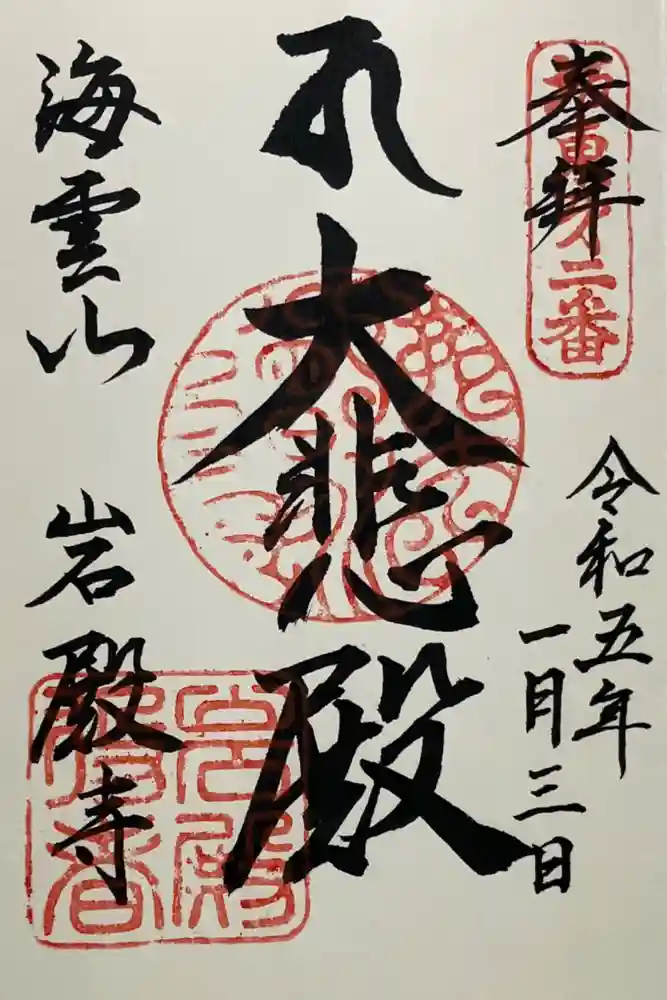 奉拝
第二番
令和五年
一月三日
大悲殿
海雲山
岩殿寺